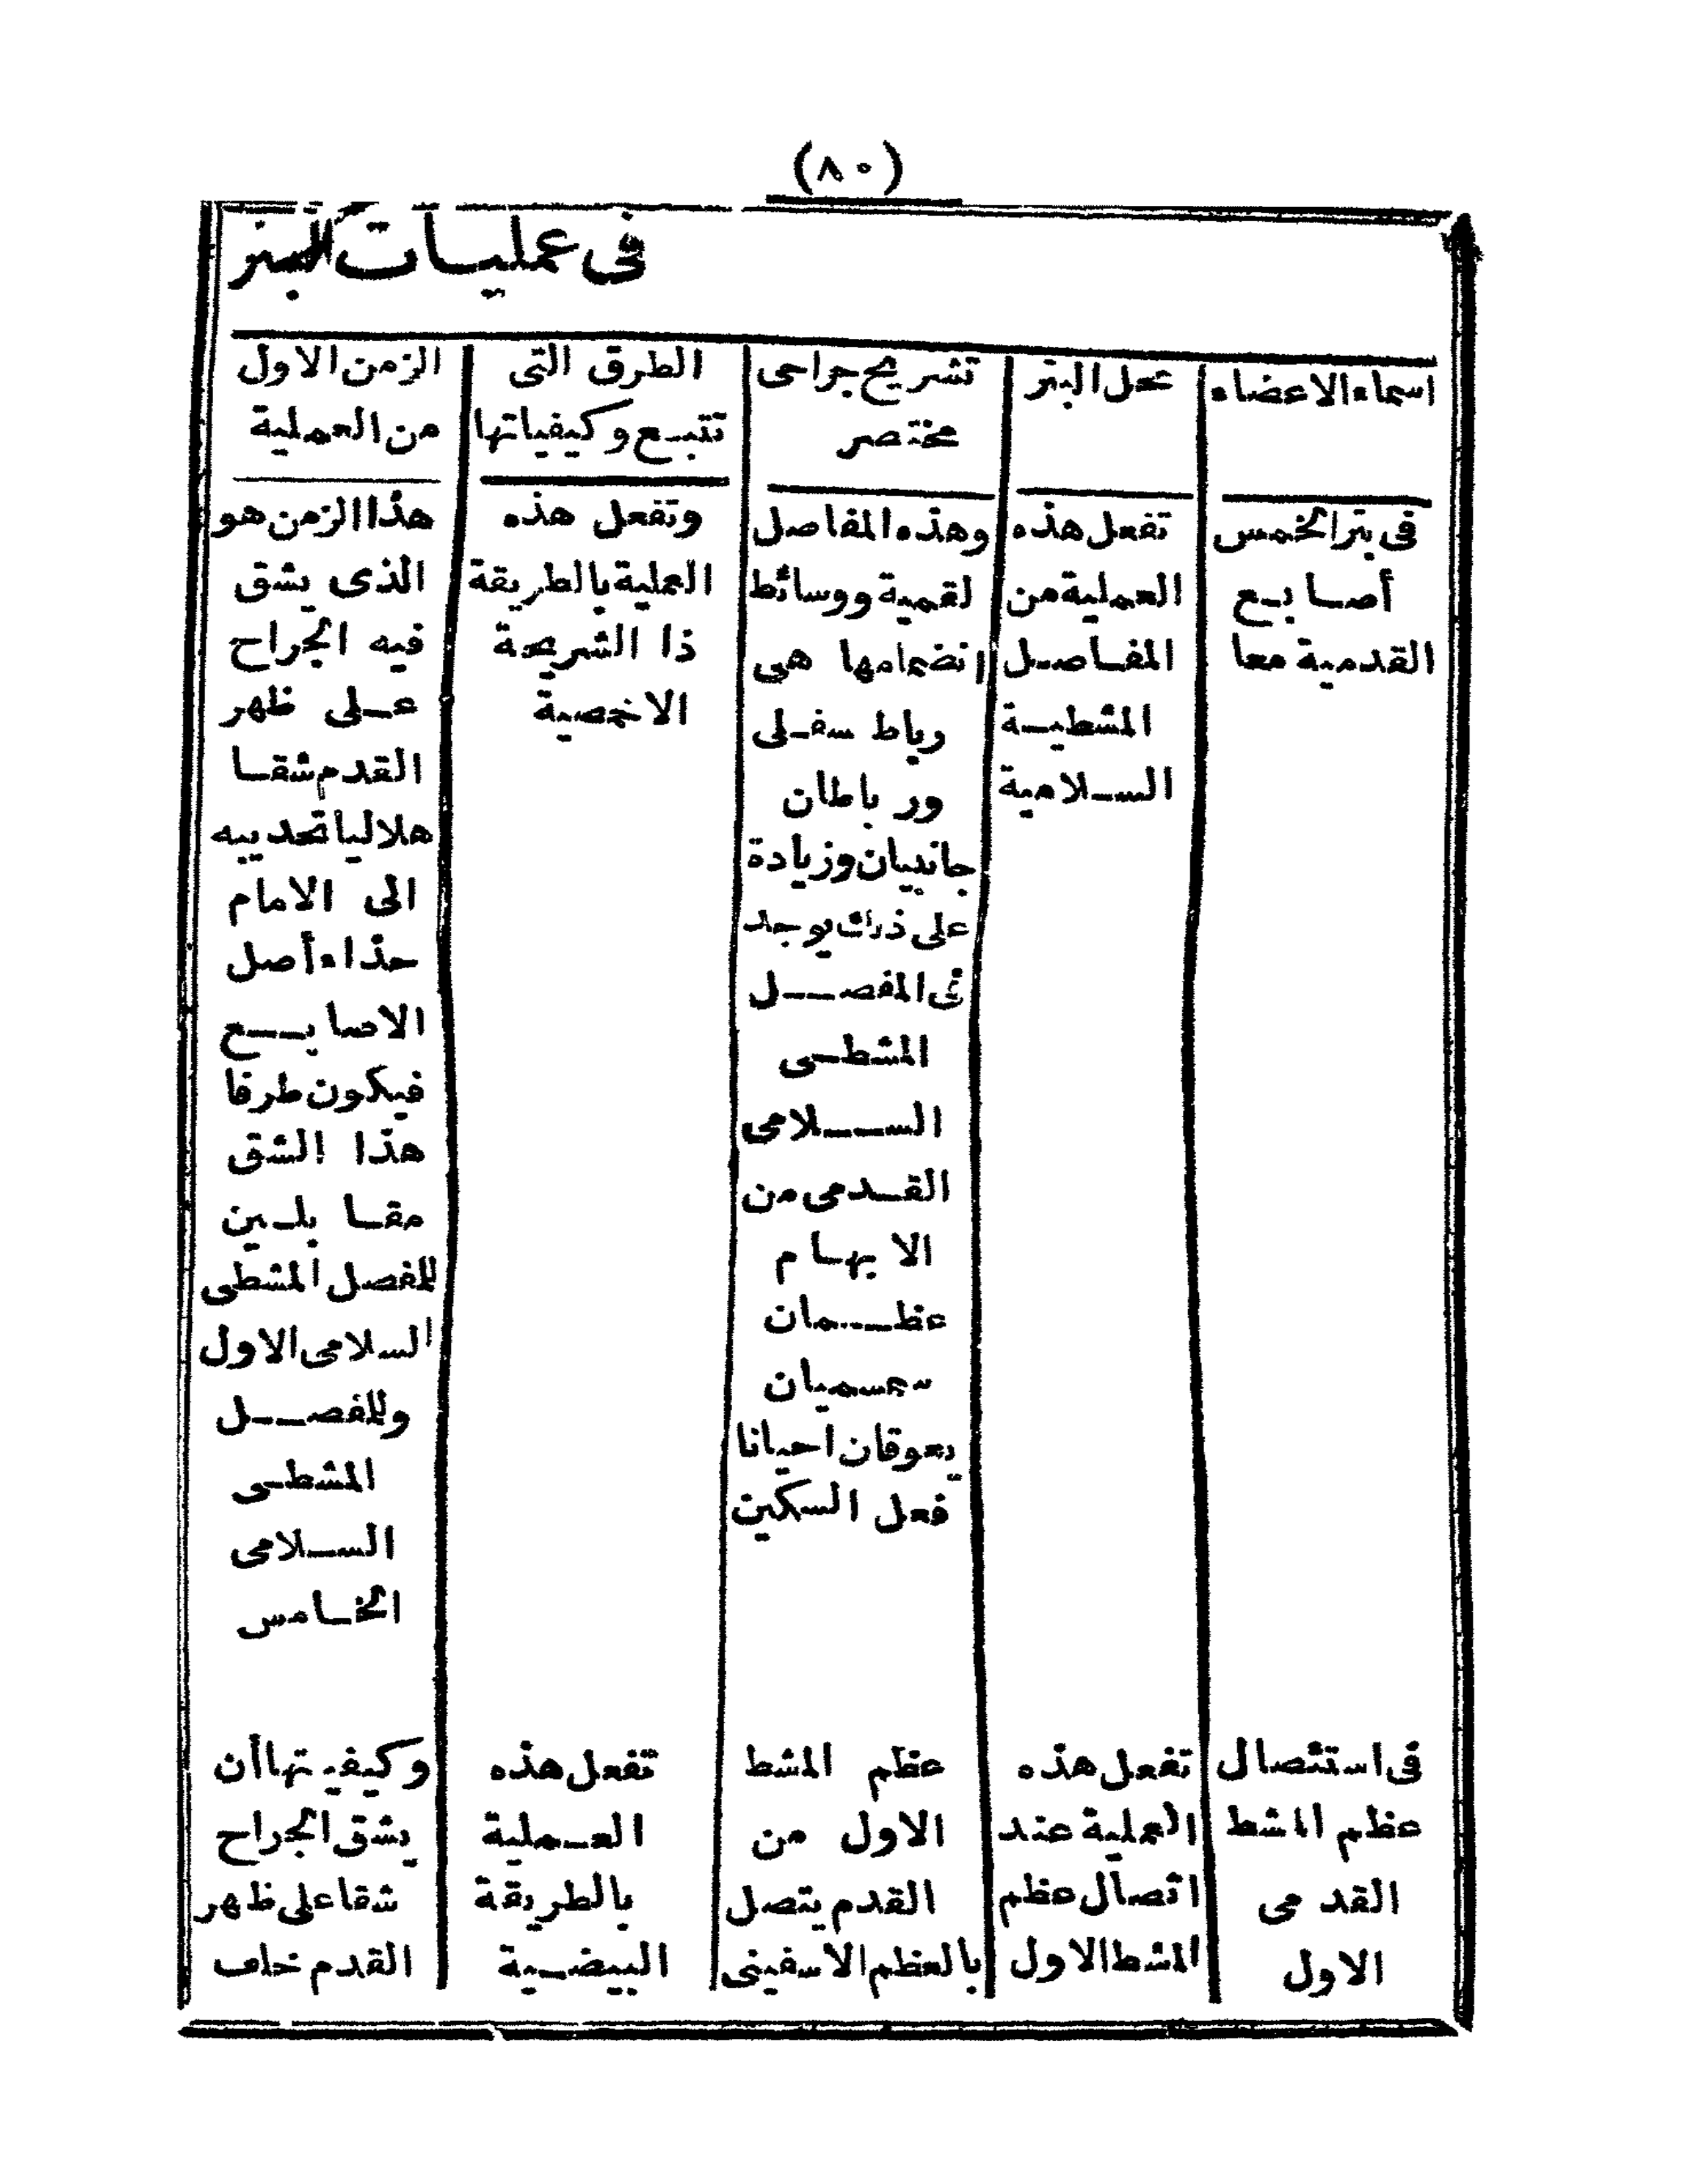 (٨٠)
فى عمليات البتر
اسماء الاعضاء
محل البتر
تشريح جراحى
مختصر
الطرق التى
تتبع وكيفياتها
الزمن الاول
من العملية
فى بتر الخمس
أصابع
القدمية معا
تفعل هذه
العملية من
المفاصل
المشطية
السلامية
وهذه المفاصل
لقمية ووسائط
انضمامها هى
رباط سفلى
ورباطان
جانبيان وزيادة
على ذلك يوجد
فى المفصل
المشطى
السلامى
القدمى من
الابهام
عظمان
سمسميان
يعوقان احيانا
فعل السكين
وتفعل هذه
العملية بالطريقة
ذا الشريحة
الاخمصية
هذا الزمن هو
الذى يشق
فيه الجراح
على ظهر
القدم شقا
هلاليا تحديبه
الى الامام
حذاء أصل
الاصابع
فيكون طرفا
هذا الشق
مقابلين
للمفصل المشطى
السلامى الاول
وللمفصل
المشطى
السلامى
الخامس
فى استئصال
عظم المشط
القدمى
الاول
تفعل هذه
العملية عند
اتصال عظم
المشط الاول
عظم المشط
الاول من
القدم يتصل
بالعظم الاسفينى
تفعل هذه
العملية
بالطريقة
البيضية
وكيفيتها أن
يشق الجراح
شقا على ظهر
القدم خلف